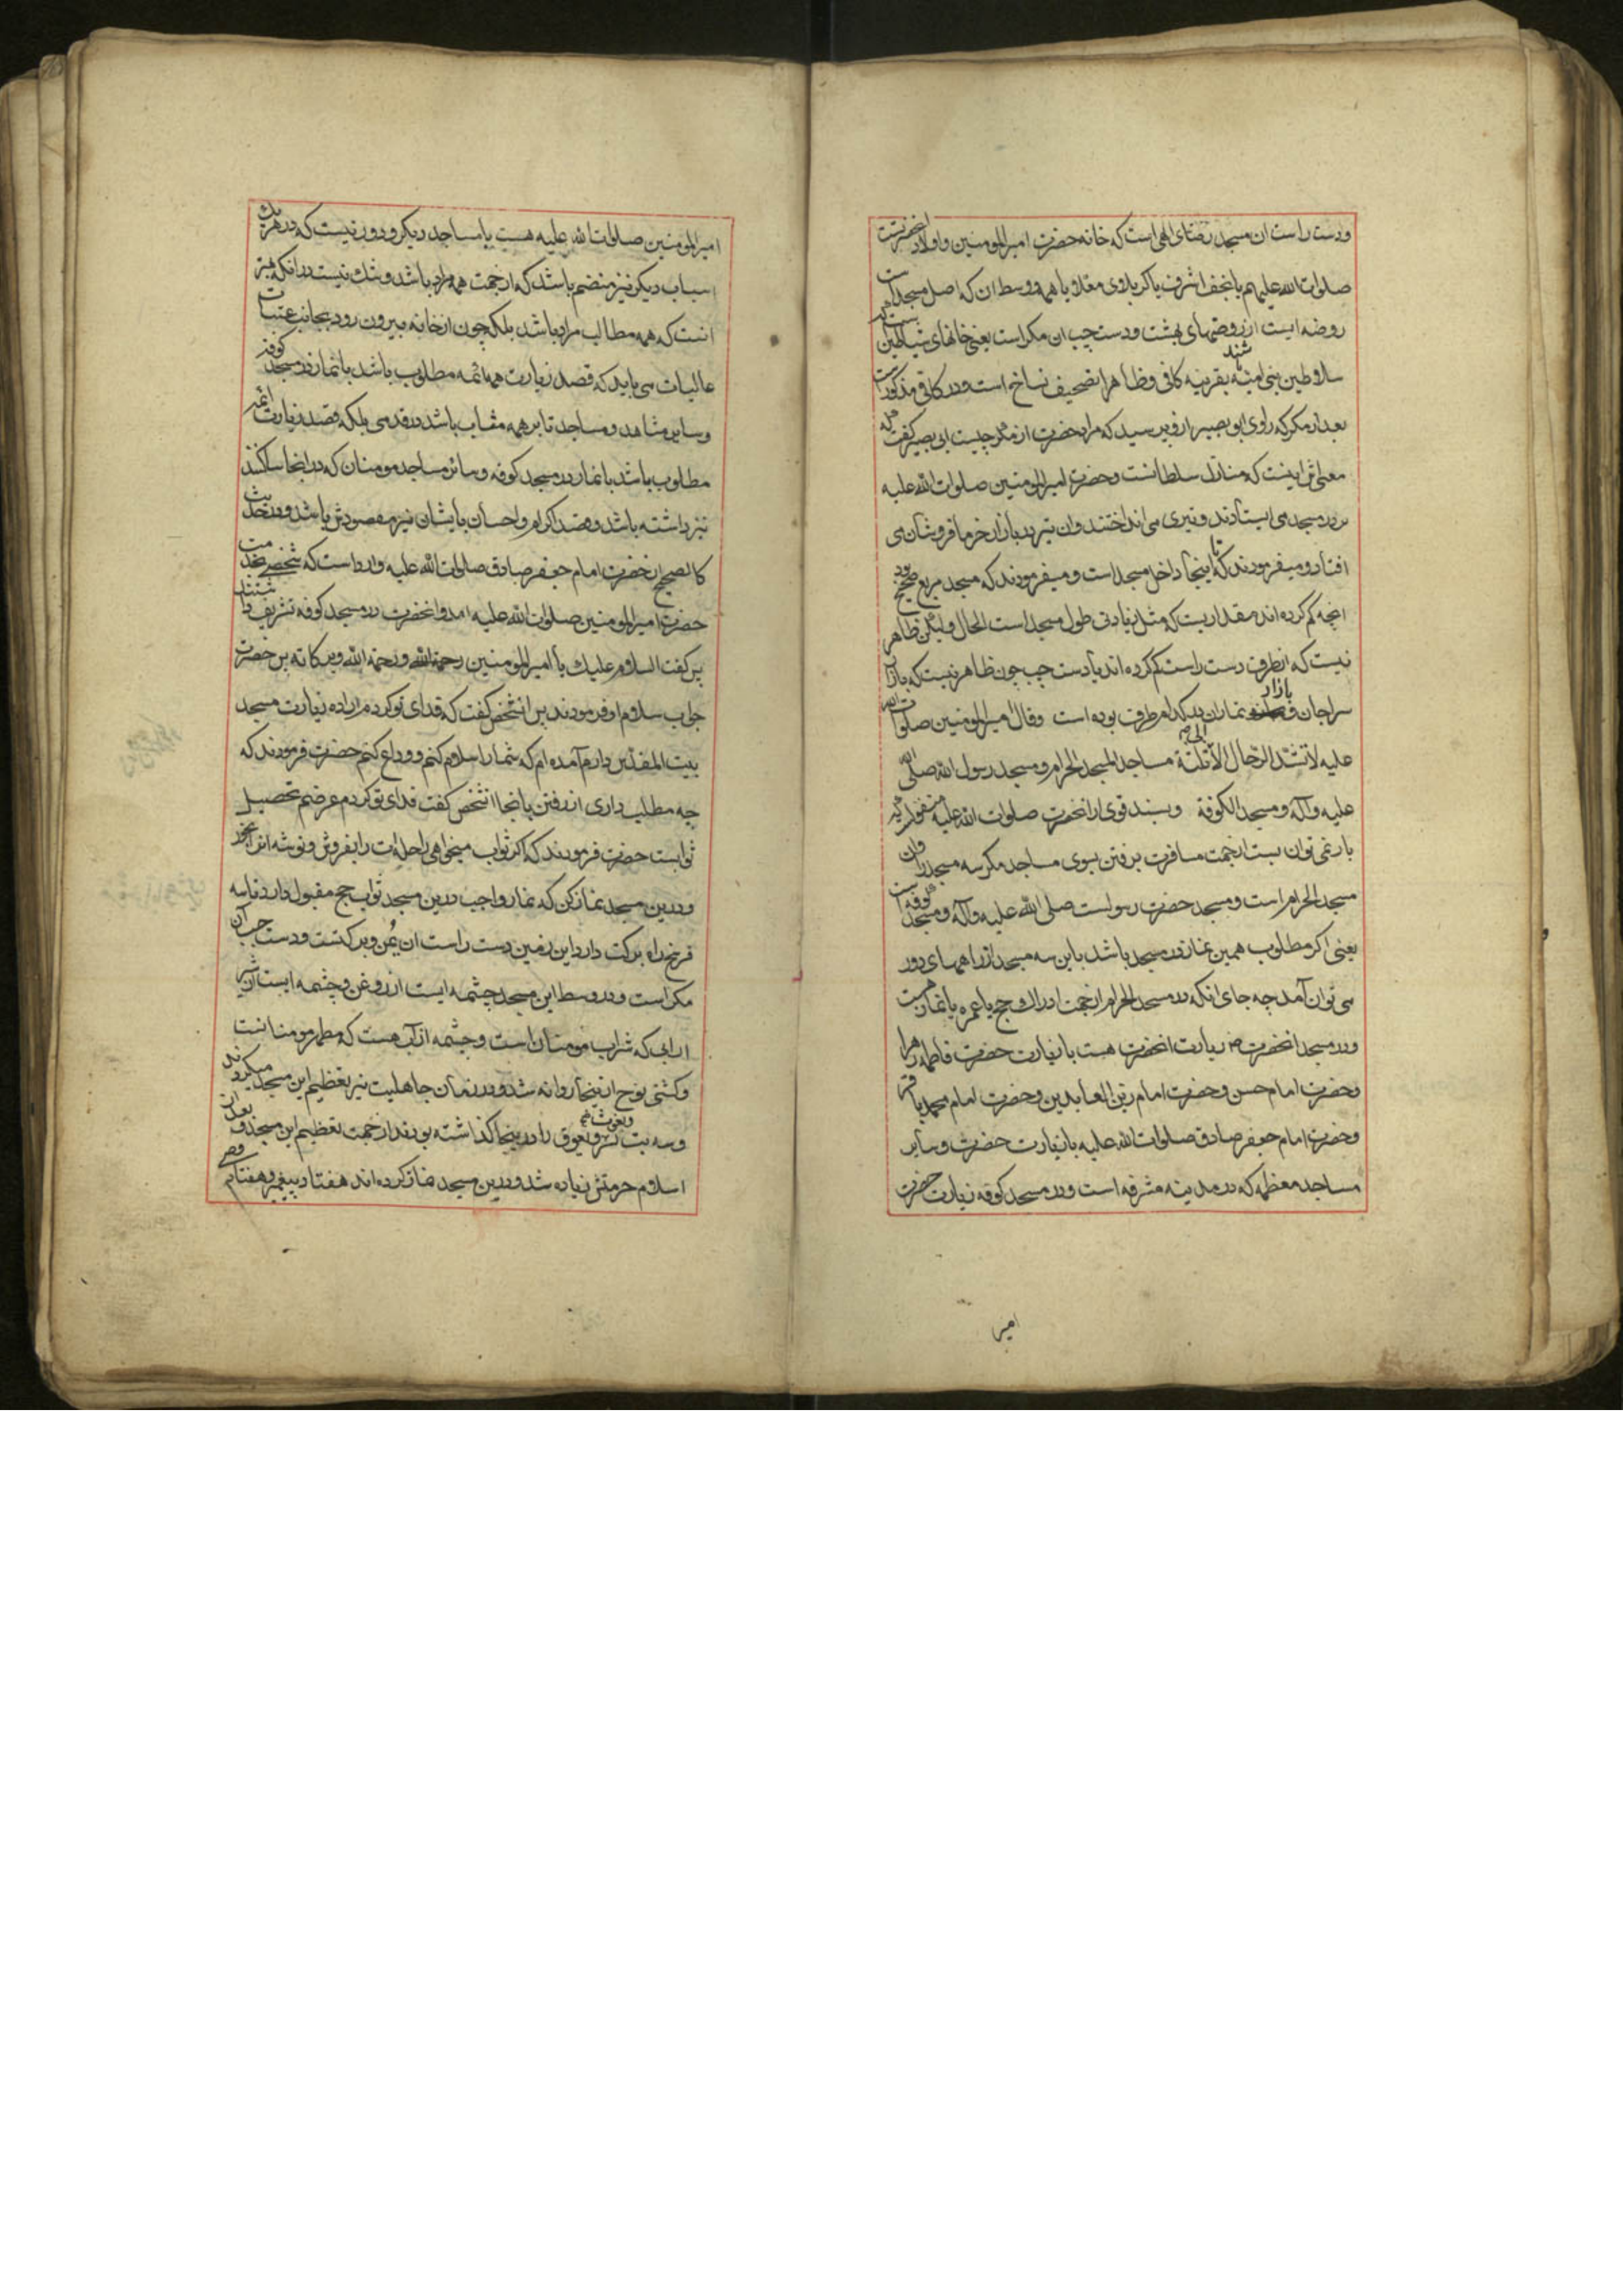 ودست راست ان مسجد رضای الهی است که خانه حضرت امیرالمومنین واولاد انحضرتست
صلوات الله علیهم یا نجف اشرف یا کربلای معلا یا همه ووسط ان که اصل مسجد است
روضه ایست از روضهای بهشت ودست چپ ان مکر است یعنی خانهای شیاطین
سلاطین بنی امیه باشند بقرینه کافی وظاهرا تصحیف نساخ است ودر کافی مذکور است
بعد از مکر که راوی ابو بصیر ازو پرسید که مراد حضرت از مکر چیست ابی بصیر گفت که
معنی اش اینست که منازل سلطانست وحضرت امیرالمومنین صلوات الله علیه
بر در مسجد می ایستادند و تیری می انداختند وان تیر در بازار خرما فروشان می
افتاد ومیفرمودند که تا اینجا داخل مسجد است ومیفرمودند که مسجد مربع صحیح بود
انچه کم کرده اند مقداریست که مثل زیادتی طول مسجد است الحال ولیکن ظاهر
نیست که از طرف دست راست کم کرده اند یا دست چپ چون ظاهر نیست که بازار
سراجان و بازار تماران در کدام طرف بوده است وقال امیرالمومنین صلوات الله
علیه لا تشد الرحال الا الی ثلثة مساجد المسجد الحرام ومسجد رسول الله صلی الله
علیه وآله ومسجد الکوفة وبسند قوی از انحضرت صلوات الله علیه منقولست که
بار نمی توان بست از جهت مسافرت برفتن بسوی مساجد مکر سه مسجد را وان
مسجد الحرام است ومسجد حضرت رسولست صلی الله علیه وآله ومسجد کوفه است
یعنی اکر مطلوب همین نماز در مسجد باشد باین سه مسجد از راههای دور
می توان آمد چه جای انکه در مسجد الحرام از جهت ادراک حج یا عمره یا نماز هست
ودر مسجد انحضرت ص زیارت انحضرت هست با زیارت حضرت فاطمه زهرا
وحضرت امام حسن وحضرت امام زین العابدین وحضرت امام محمد باقر
وحضرت امام جعفر صادق صلوات الله علیه با زیارت حضرت وسایر
مساجد معظمه که در مدینه مشرفه است ودر مسجد کوفه زیارت حضرت
امیر
امیرالمومنین صلوات الله علیه هست یا مساجد دیکر ودور نیست که در هر یک
اسباب دیکر نیز منضم باشد که از جهت همه مراد باشد وشک نیست در انکه بهتر
انست که همه مطالب مراد باشد بلکه چون از خانه بیرون رود بجانب عتبات
عالیات می باید که قصد زیارت همه ائمه مطلوب باشد با نماز در مسجد کوفه
وسایر مشاهد ومساجد تا بر همه مثاب باشد در قدمی بلکه قصد زیارت ائمه
مطلوب باشد با نماز در مسجد کوفه وسائر مساجد مومنان که در انجا ساکنند
نیز داشته باشد وقصد اکرام واحسان بایشان نیز مقصودش باشد ودر حدیث
کالصحیح از حضرت امام جعفر صادق صلوات الله علیه وارد است که شخصی بخدمت
حضرت امیرالمومنین صلوات الله علیه امد وانحضرت در مسجد کوفه تشریف داشتند
پس گفت السلام علیک یا امیرالمومنین ورحمة الله وبرکاته پس حضرت
جواب سلام او فرمودند پس انشخص گفت که فدای تو کردم اراده زیارت مسجد
بیت المقدس دارم آمده ام که شما را سلام کنم و وداع کنم حضرت فرمودند که
چه مطلب داری از رفتن بانجا انشخص گفت فدای تو کردم غرضم تحصیل
ثوابست حضرت فرمودند که اکر ثواب میخواهی راحله ات را بفروش وتوشه اترا بخور
ودرین مسجد نماز کن که نماز واجب درین مسجد ثواب حج مقبول دارد وتا سه
فرسخ راه برکت دارد این زمین دست راست ان یمن وبرکتست ودست چپ آن
مکر است ودر وسط این مسجد چشمه ایست از روغن وچشمه ایست از شیر
از ابی که شراب مومنان است وچشمه از آب هست که مطهر مومنانست
وکشتی نوح از اینجا روانه شد ودر زمان جاهلیت نیز تعظیم این مسجد میکردند
وسه بت نسر ویغوث ویعوق را در اینجا کذاشته بودند از جهت تعظیم این مسجد وبعد از
اسلام حرمتش زیاده شد ودرین مسجد نماز کرده اند هفتاد پیغمبر وهفتاد وصی